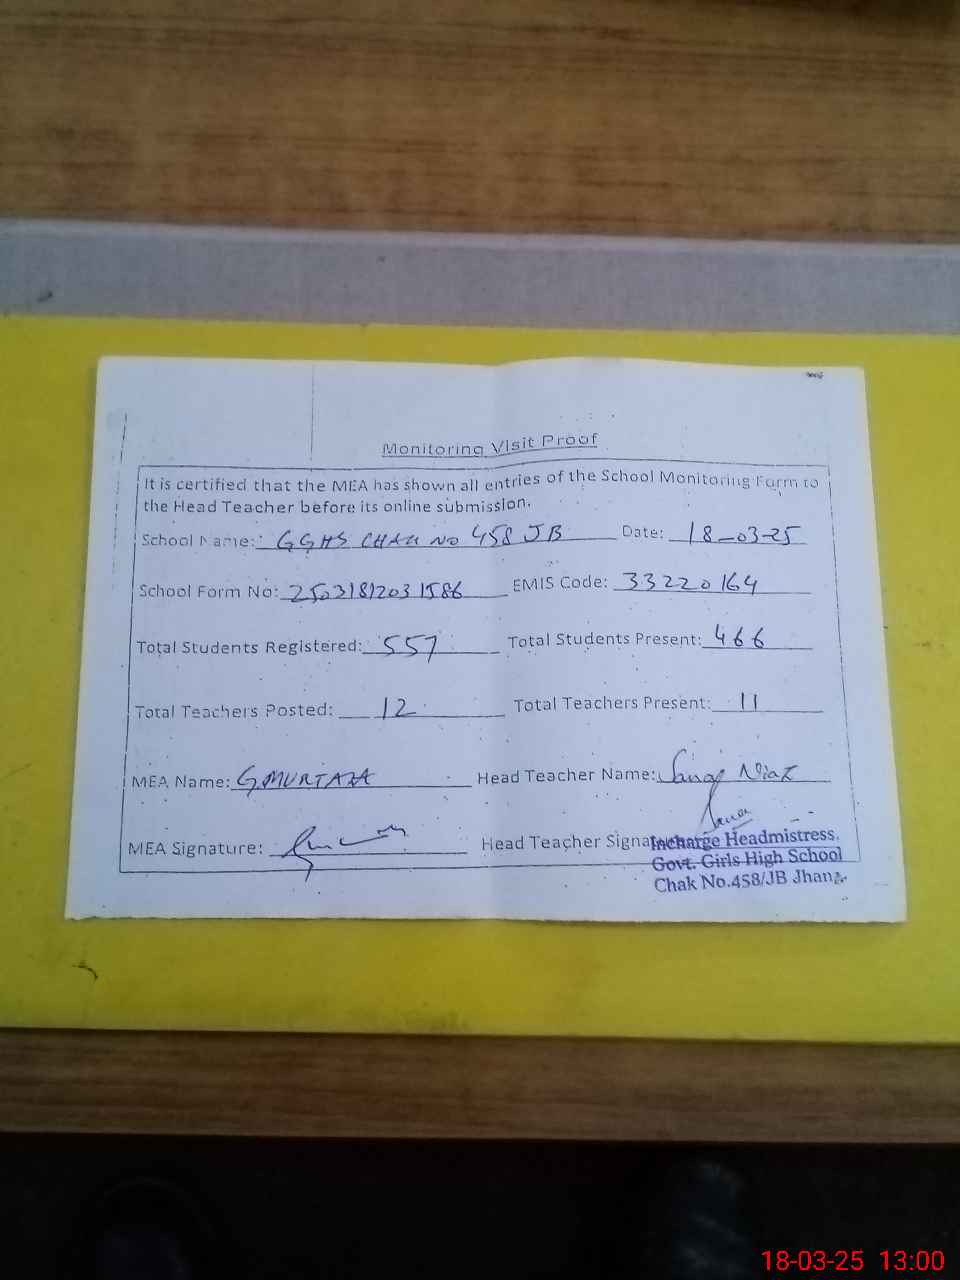 Monitoring Visit Proof
It is certified that the MEA has shown all entries of the School Monitoring Form to
the Head Teacher before its online submission.
School Name: GGHS CHAK NO 458 JB Date: 18-03-25
School Form No: 2503181203 1586 EMIS Code: 33220164
Total Students Registered: 557 Total Students Present: 466
Total Teachers Posted: 12 Total Teachers Present: 11
MEA Name: G MURTAZA Head Teacher Name: Niaz
MEA Signature: Head Teacher Signa
Incharge Headmistress,
Govt. Girls High School
Chak No.458/JB Jhang.
18-03-25 13:00